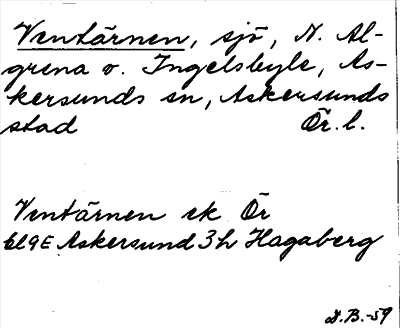 Ventärnen, sjö, N. Al-
grena o. Ingelsbyle, As-
kersunds sn, Askersunds
stad Ör. l.
Ventärnen ek Ör
9E Askersund 3h Hagaberg
D.B.-59